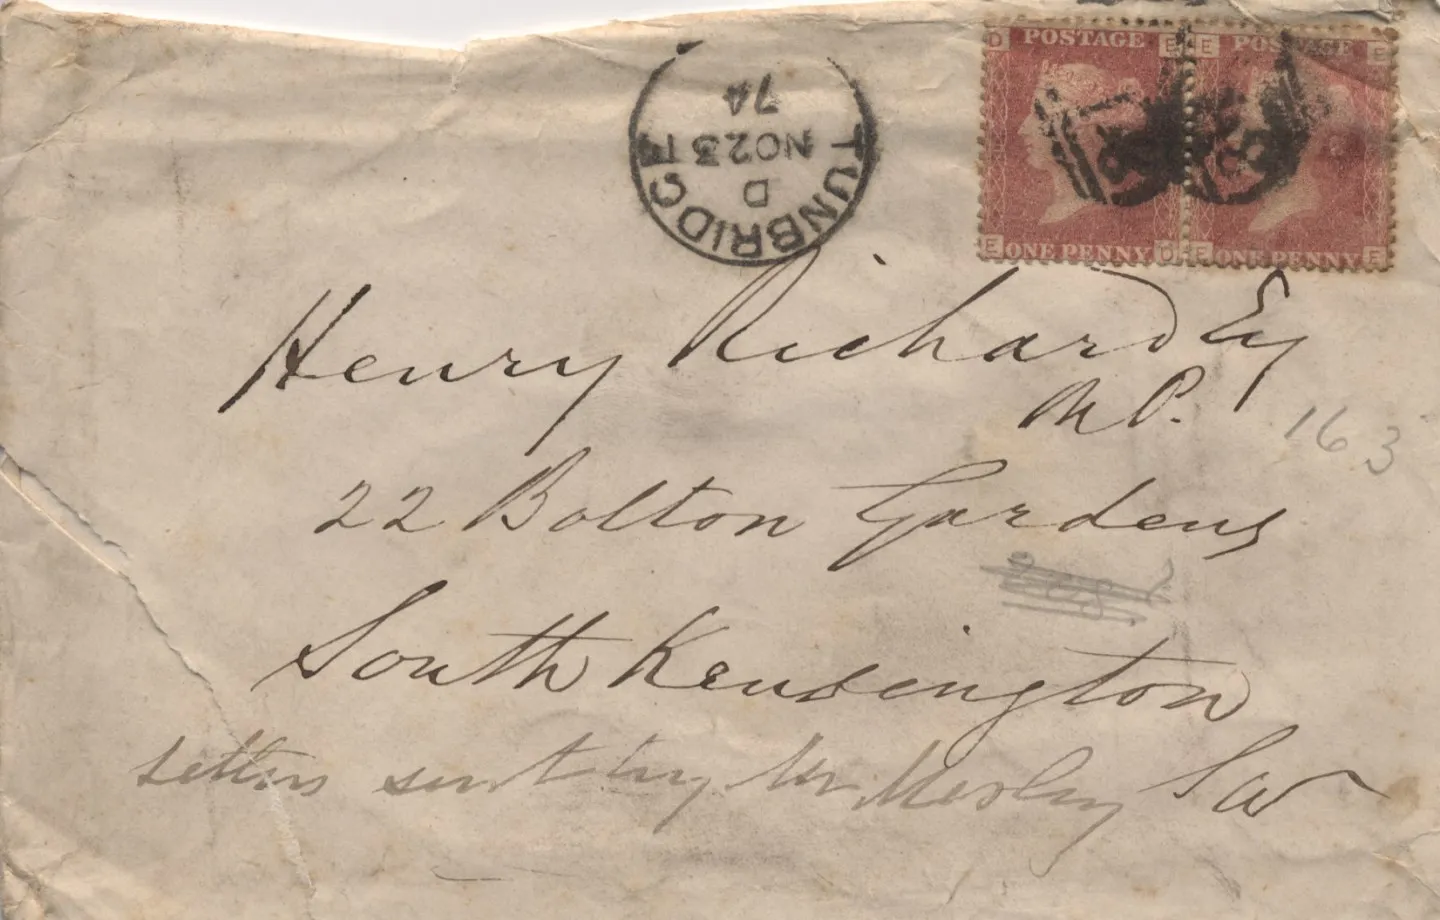 POSTAGE POSTAGE
D E E E
ONE PENNY ONE PENNY
E D E E
TUNBRIDGE
D
NO 23
74
Henry Richard Esq
M P.
163
22 Bolton Gardens
South Kensington
S W
Letters sent by Mr Morley